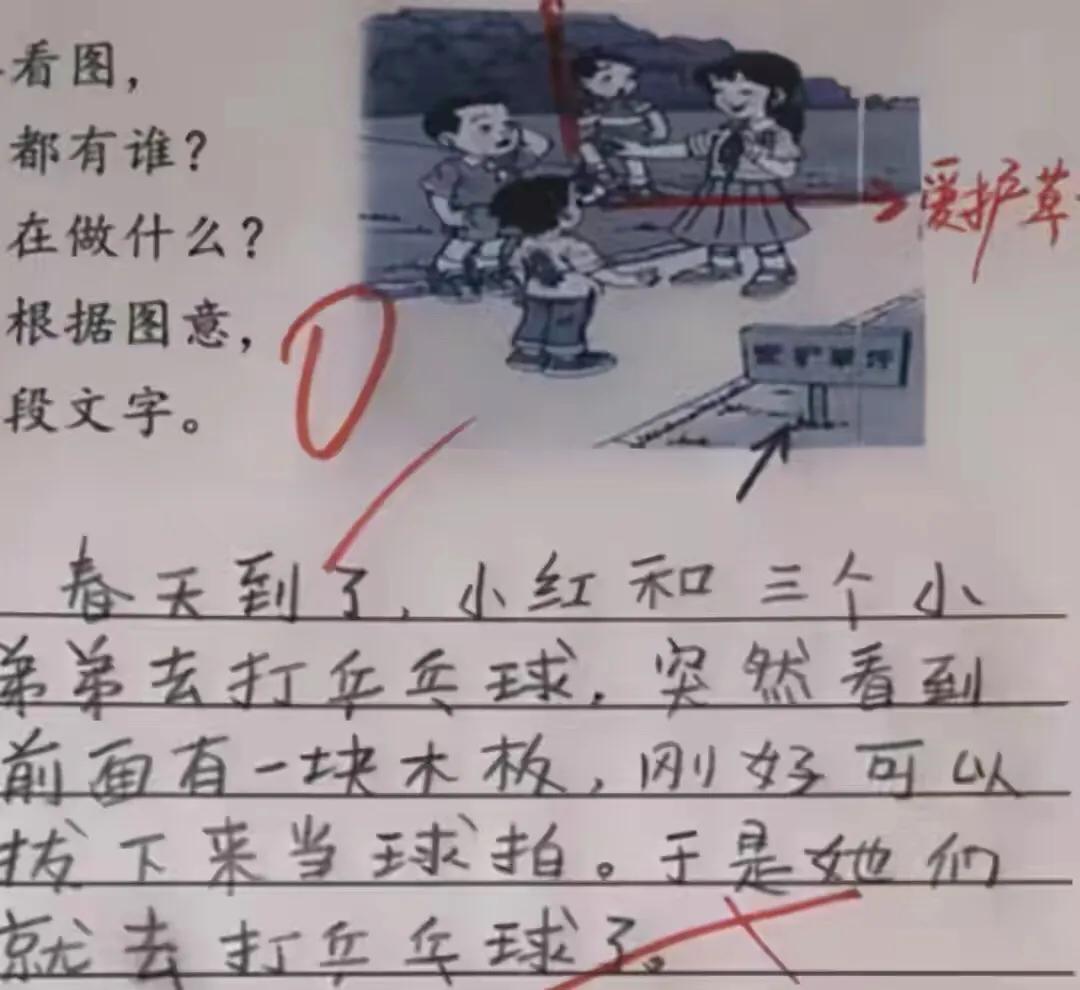 看图，
都有谁？
在做什么？
根据图意，
段文字。
爱护草
爱护草坪
0
春天到了，小红和三个小
弟弟去打乒乓球，突然看到
前面有一块木板，刚好可以
拔下来当球拍。于是她们
就去打乒乓球了。